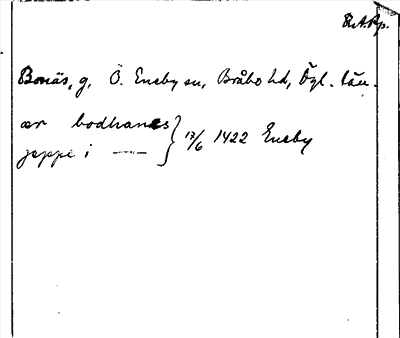 R.A.Pp.
Bonäs, g. Ö. Eneby sn, Bråbo hd, Ögl. län.
av bodhanes } 17/6 1422 Eneby
jeppe i —